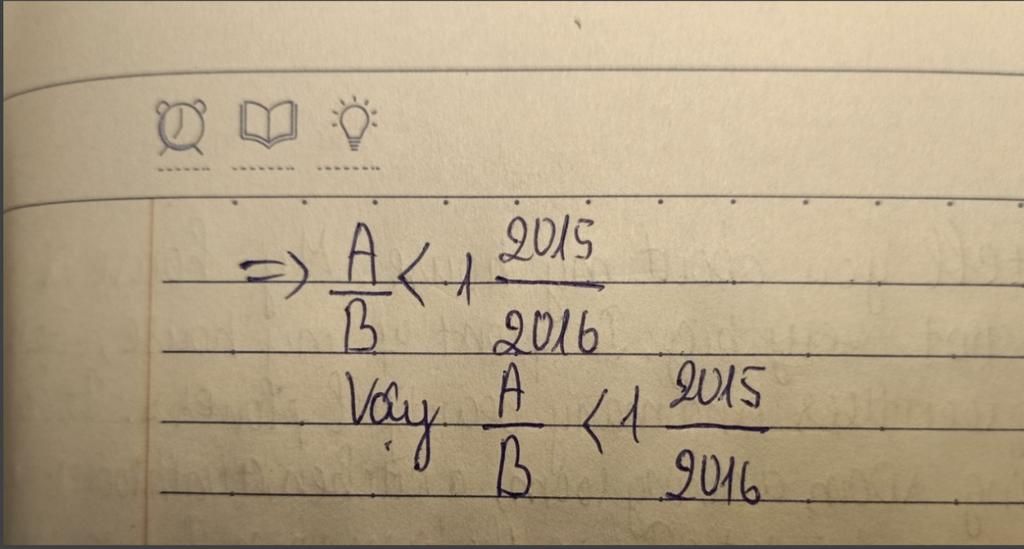 => A/B < 1 2015/2016
Vậy A/B < 1 2015/2016